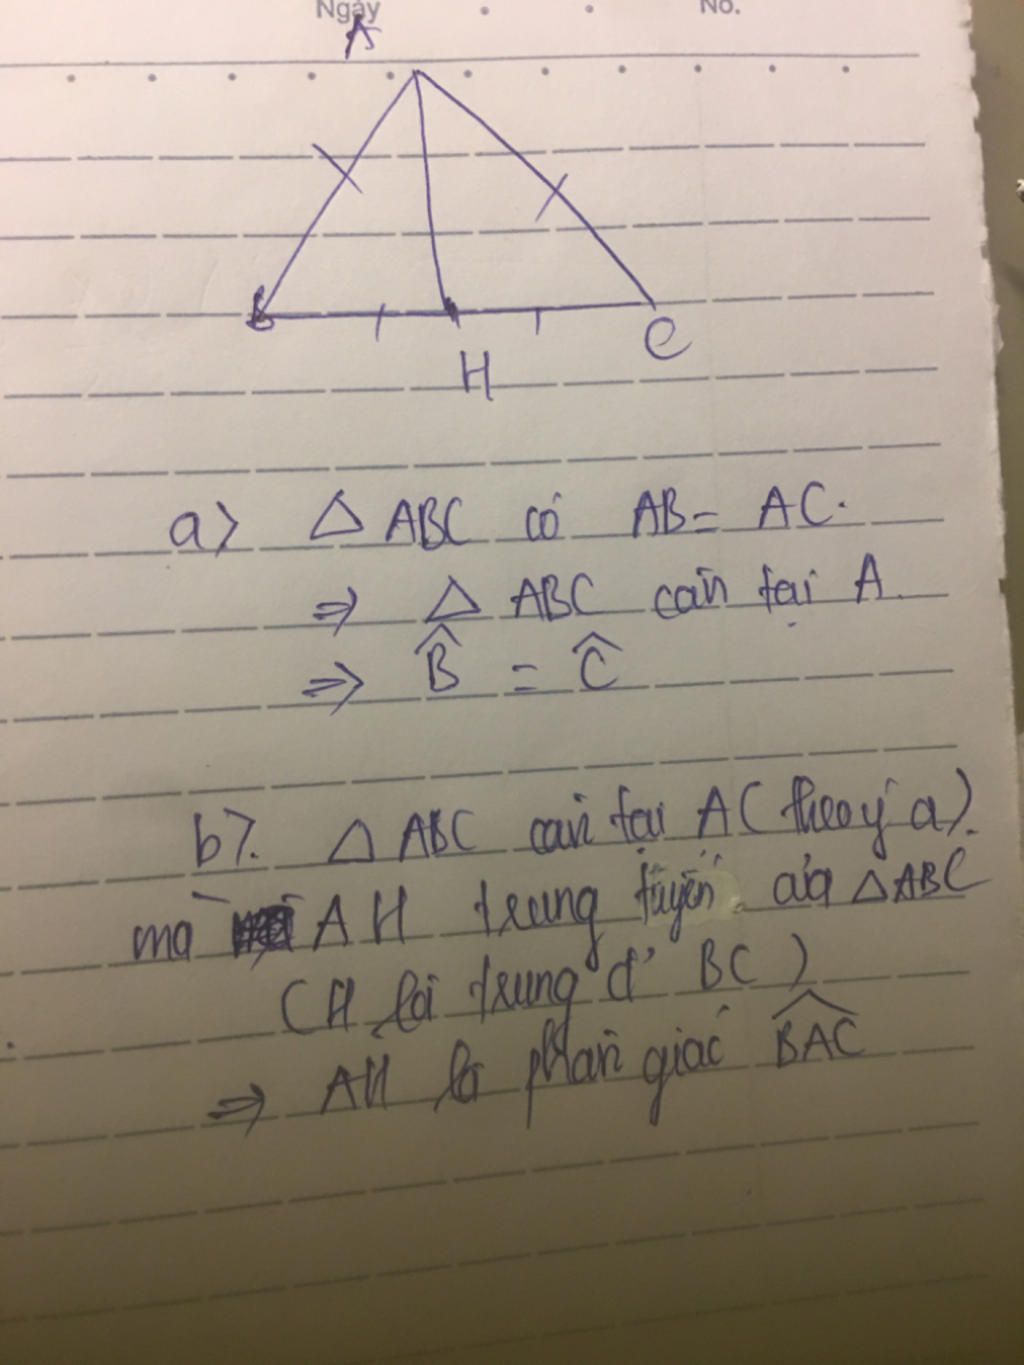 Ngày
No.
A
B
H
C
a> △ ABC có AB = AC.
⇒ △ ABC cân tại A.
⇒ B̂ = Ĉ
b>. △ ABC cân tại A ( theo ý a).
mà AH trung tuyến của △ABC
( H là trung đ' BC )
⇒ AH là phân giác B͡AC